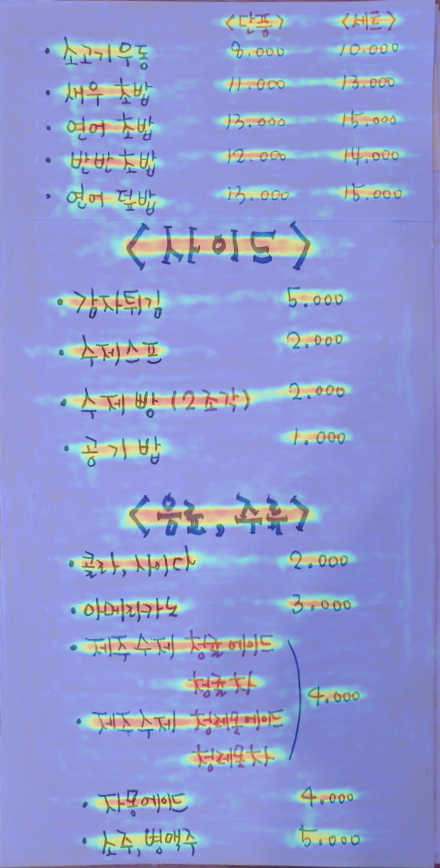 <단품> <세트>
· 소고기우동 8.000 10.000
· 새우 초밥 11.000 13.000
· 연어 초밥 13.000 15.000
· 반반초밥 12.000 14.000
· 연어 덮밥 13.000 15.000
<사이드>
· 감자튀김 5.000
· 수제스프 2.000
· 수제 빵 (2조각) 2.000
· 공기밥 1.000
<음료, 주류>
· 콜라, 사이다 2.000
· 아메리카노 3.000
· 제주수제 청귤에이드
청귤차
4.000
· 제주수제 청레몬에이드
청레몬차
· 자몽에이드 4.000
· 소주, 병맥주 5.000